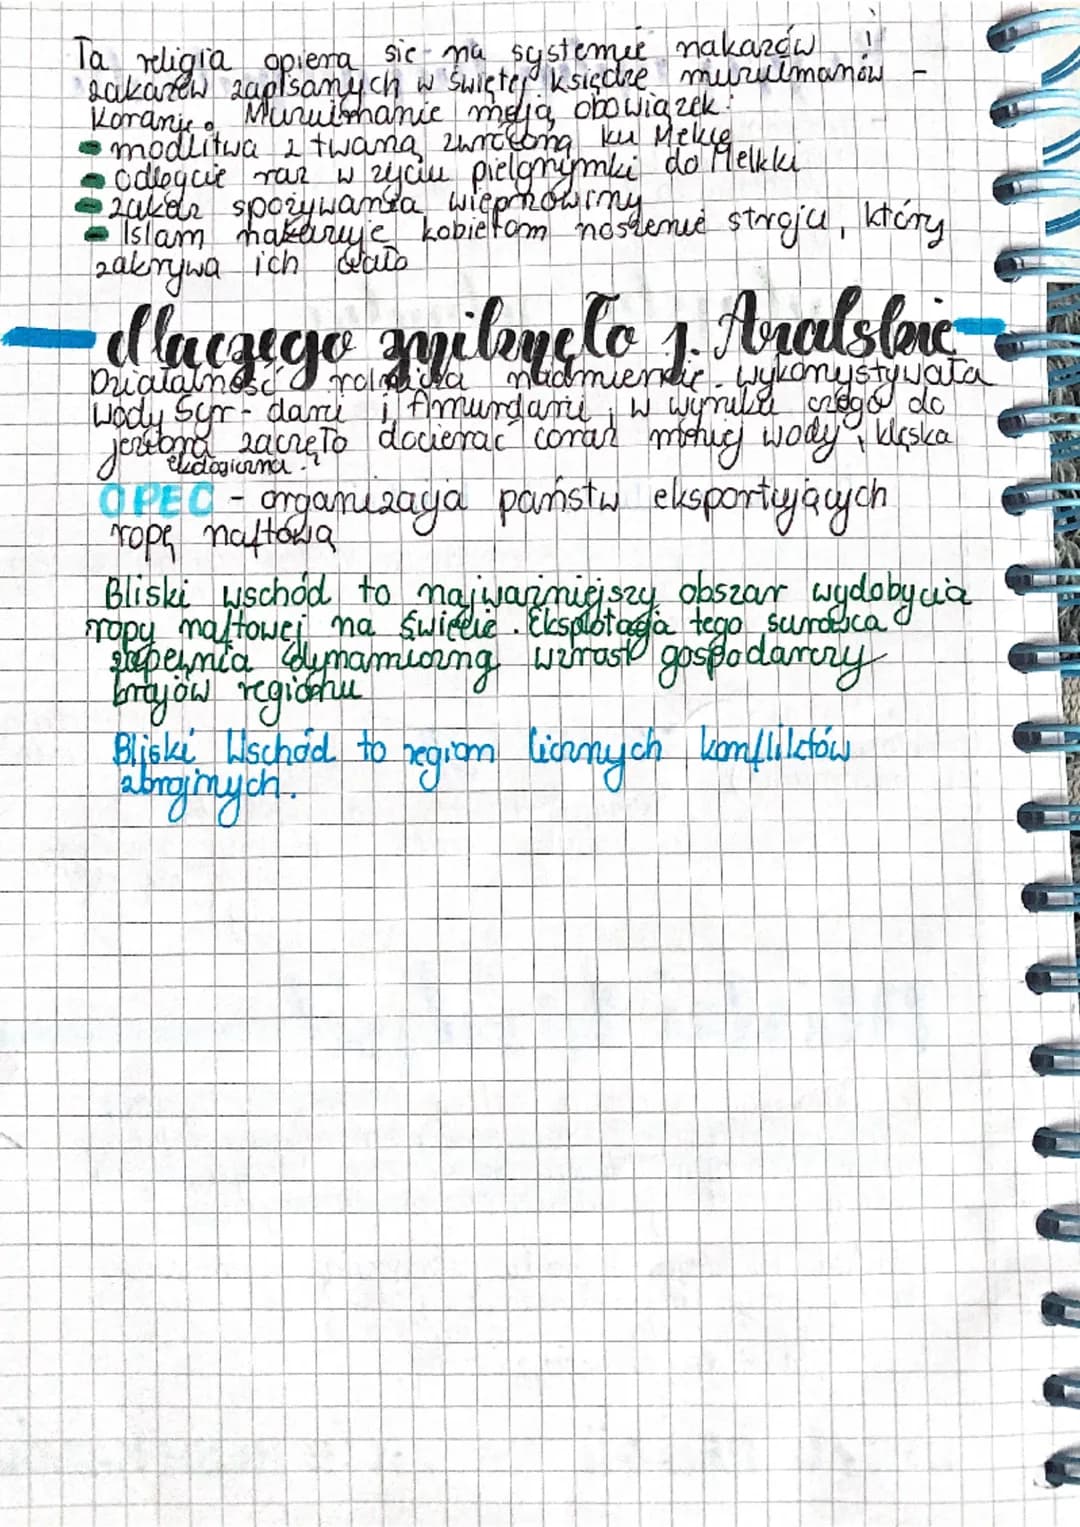 Ta religia opiera sie na systemie nakazów i
zakazów zapisanych w świętej księdze muzułmanów -
Koranie. Muzułmanie mają obowiązek:
modlitwa z twarzą zwróconą ku Mekce
odbycie raz w życiu pielgrzymki do Mekki
zakaz spożywania wieprzowiny
Islam nakazuje kobietom noszenie stroju, który
zakrywa ich ciało
dlaczego zniknęło j. Aralskie
Działalność rolnicza nadmiernie wykorzystywała
wody Syr-darii i Amurdarii, w wyniku czego do
jeziora zaczęło docierać coraz mniej wody, klęska
ekologiczna.
OPEC - organizacja państw eksportujących
ropę naftową
Bliski wschód to najważniejszy obszar wydobycia
ropy naftowej na świecie. Eksplotacja tego surowca
zapewnia dynamiczny wzrost gospodarczy
krajów regionu
Bliski Wschód to region licznych konfliktów
zbrojnych.